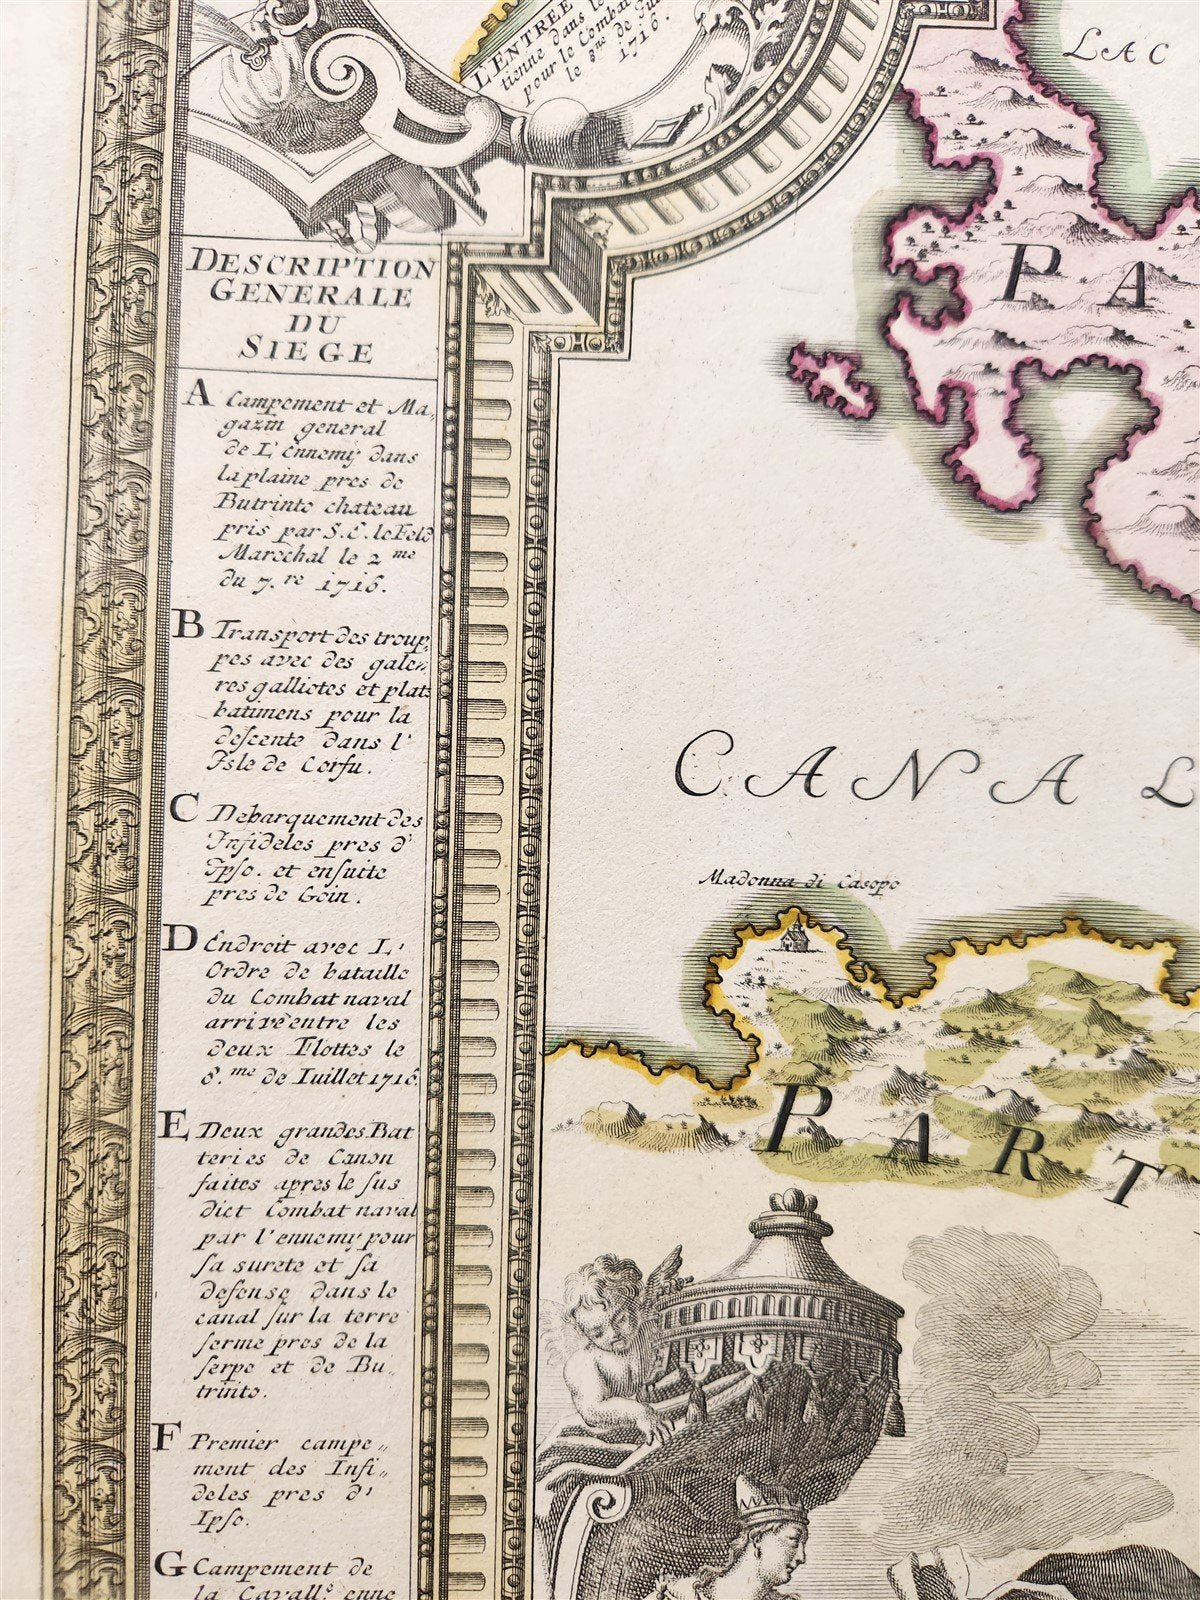 L'ENTREE
tienne dans le
pour le Combat
le 8.me de Jui
1716.
LAC
DESCRIPTION
GENERALE
DU
SIEGE
A Campement et Ma„
gazin general
de L'ennemy dans
la plaine pres de
Butrinto chateau
pris par S.E. le Feld
Marechal le 2 me
du 7.re 1716.
B Transport des troup„
pes avec des gale„
res galliotes et plats
batimens pour la
descente dans l'
Isle de Corfu.
C Debarquement des
Infideles pres d'
Ipso. et ensuite
pres de Goin.
D Endroit avec L'
Ordre de bataille
du Combat naval
arrivé entre les
deux Flottes le
8.me de Iuillet 1716.
E Deux grandes Bat
teries de Canon
faites apres le sus
dict Combat naval
par l'ennemy pour
sa surete et sa
defense dans le
canal sur la terre
ferme pres de la
serpe et de Bu„
trinto.
F Premier campe„
ment des Infi„
deles pres d'
Ipso.
G Campement de
la Cavall.e enne
PA
CANAL
Madonna di Casopo
PART